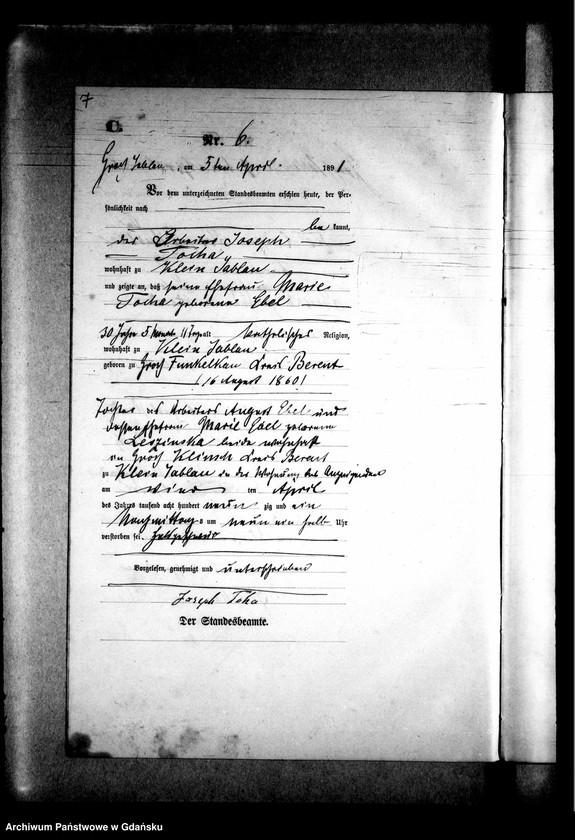 7
C.
Nr. 6.
Groß Jablau, am 5ten April. 1891
Vor dem unterzeichneten Standesbeamten erschien heute, der Per-
sönlichkeit nach
be kannt,
der Arbeiter Joseph
Tocha
wohnhaft zu Klein Jablau
und zeigte an, daß seine Ehefrau Marie
Tocha geborene Ebel
30 Jahre 5 Monate 11 Tage alt katholischer Religion,
wohnhaft zu Klein Jablau
geboren zu Groß Funkelkau Kreis Berent
(16 August 1860)
Tochter des Arbeiters August Ebel und
dessen Ehefrau Marie Ebel geborene
Leszinska beide wohnhaft
in Groß Klinsch Kreis Berent
zu Klein Jablau in der Wohnung des Anzeigenden
am vier ten April
des Jahres tausend acht hundert neun zig und ein
Nachmittags um neun ein halb Uhr
verstorben sei.
Vorgelesen, genehmigt und unterschrieben
Joseph Toha
Der Standesbeamte.
Archiwum Państwowe w Gdańsku